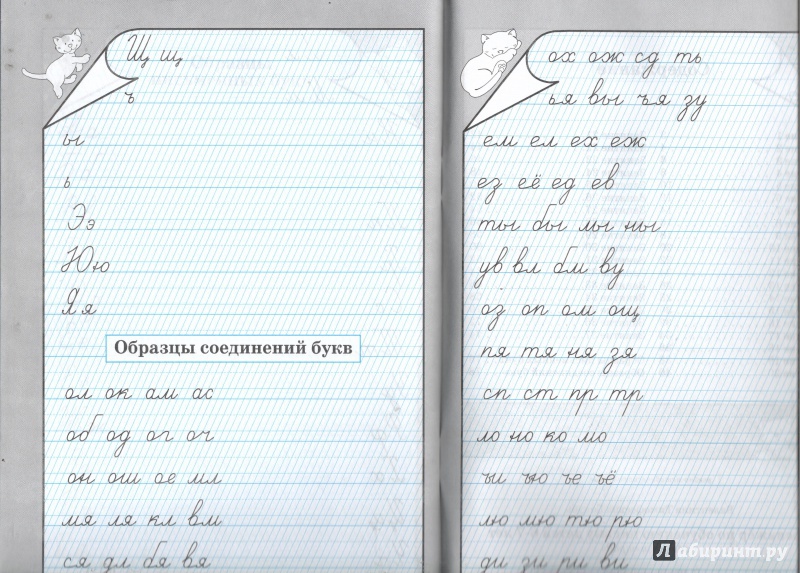 Щ щ
ъ
ы
ь
Ээ
Юю
Яя
Образцы соединений букв
ол ок ам ас
об од ог оч
он ош ое мл
мя ля кл вм
ся дл бя вя
ох ож сд ть
ья вы ъя зу
ем ел ех еж
ез её ед ев
ты бы лы ны
ув вл бм ву
оз оп ом ощ
пя тя ня зя
сп ст пр тр
ло но ко мо
ьи ью ъе ъё
лю мю тю рю
ди зи ри ви
Лабиринт.ру